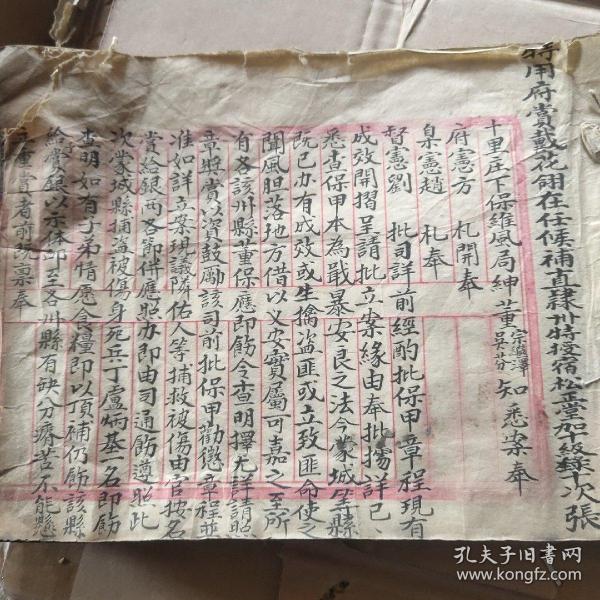 特用府賞戴花翎在任候補直隸州特授宿松正堂加十級錄十次張
十里庄下保維風局紳董宗繼澤吳芬知悉案奉
府憲方　札開奉
臬憲趙　札奉
督憲劉　批司詳前經酌批保甲章程現有
成效開摺呈請批立案緣由奉批據詳已
悉查保甲本為戢暴安良之法今蒙城等縣
既已办有成效或生擒盜匪或立致匪命使之
聞風胆落地方借以乂安實屬可嘉之至所
有各該州縣董保應即飭令查明擇尤詳請照
章獎賞以資鼓勵該司前批保甲勸懲章程並
准如詳立案現議隣佑人等捕救被傷由官按名
賞給銀两各節併應照办即由司通飭遵照此
次蒙城縣捕盜被傷身死兵丁盧炳基一名即飭
查明如有子弟情愿食糧即以頂補仍飭該縣
給賞銀以示体卹至各州縣有缺分瘠苦不能懸
重賞者前院禀奉
孔夫子旧书网
www.kongfz.com